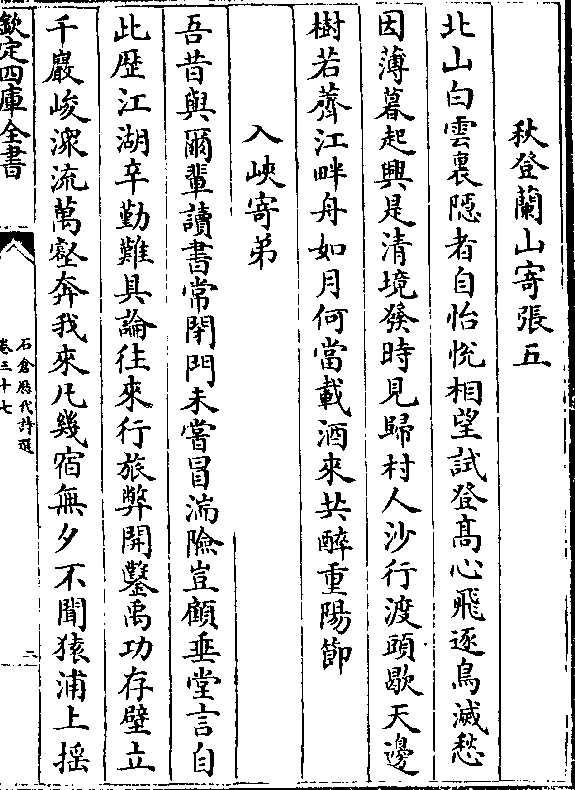 秋登蘭山寄張五
北山白雲裏隠者自怡恱相望試登髙心飛逐鳥滅愁
因薄暮起興是清境發時見歸村人沙行渡頭歇天邊
樹若薺江畔舟如月何當載酒來共醉重陽節
入峽寄弟
吾昔與爾輩讀書常閉門未嘗冒湍險豈顧垂堂言自
此歴江湖辛勤難具論往來行旅弊開鑿禹功存壁立
千巖峻潨流萬壑奔我來凡幾宿無夕不聞猿浦上揺
欽定四庫全書
石倉厯代詩選
卷三十七
二